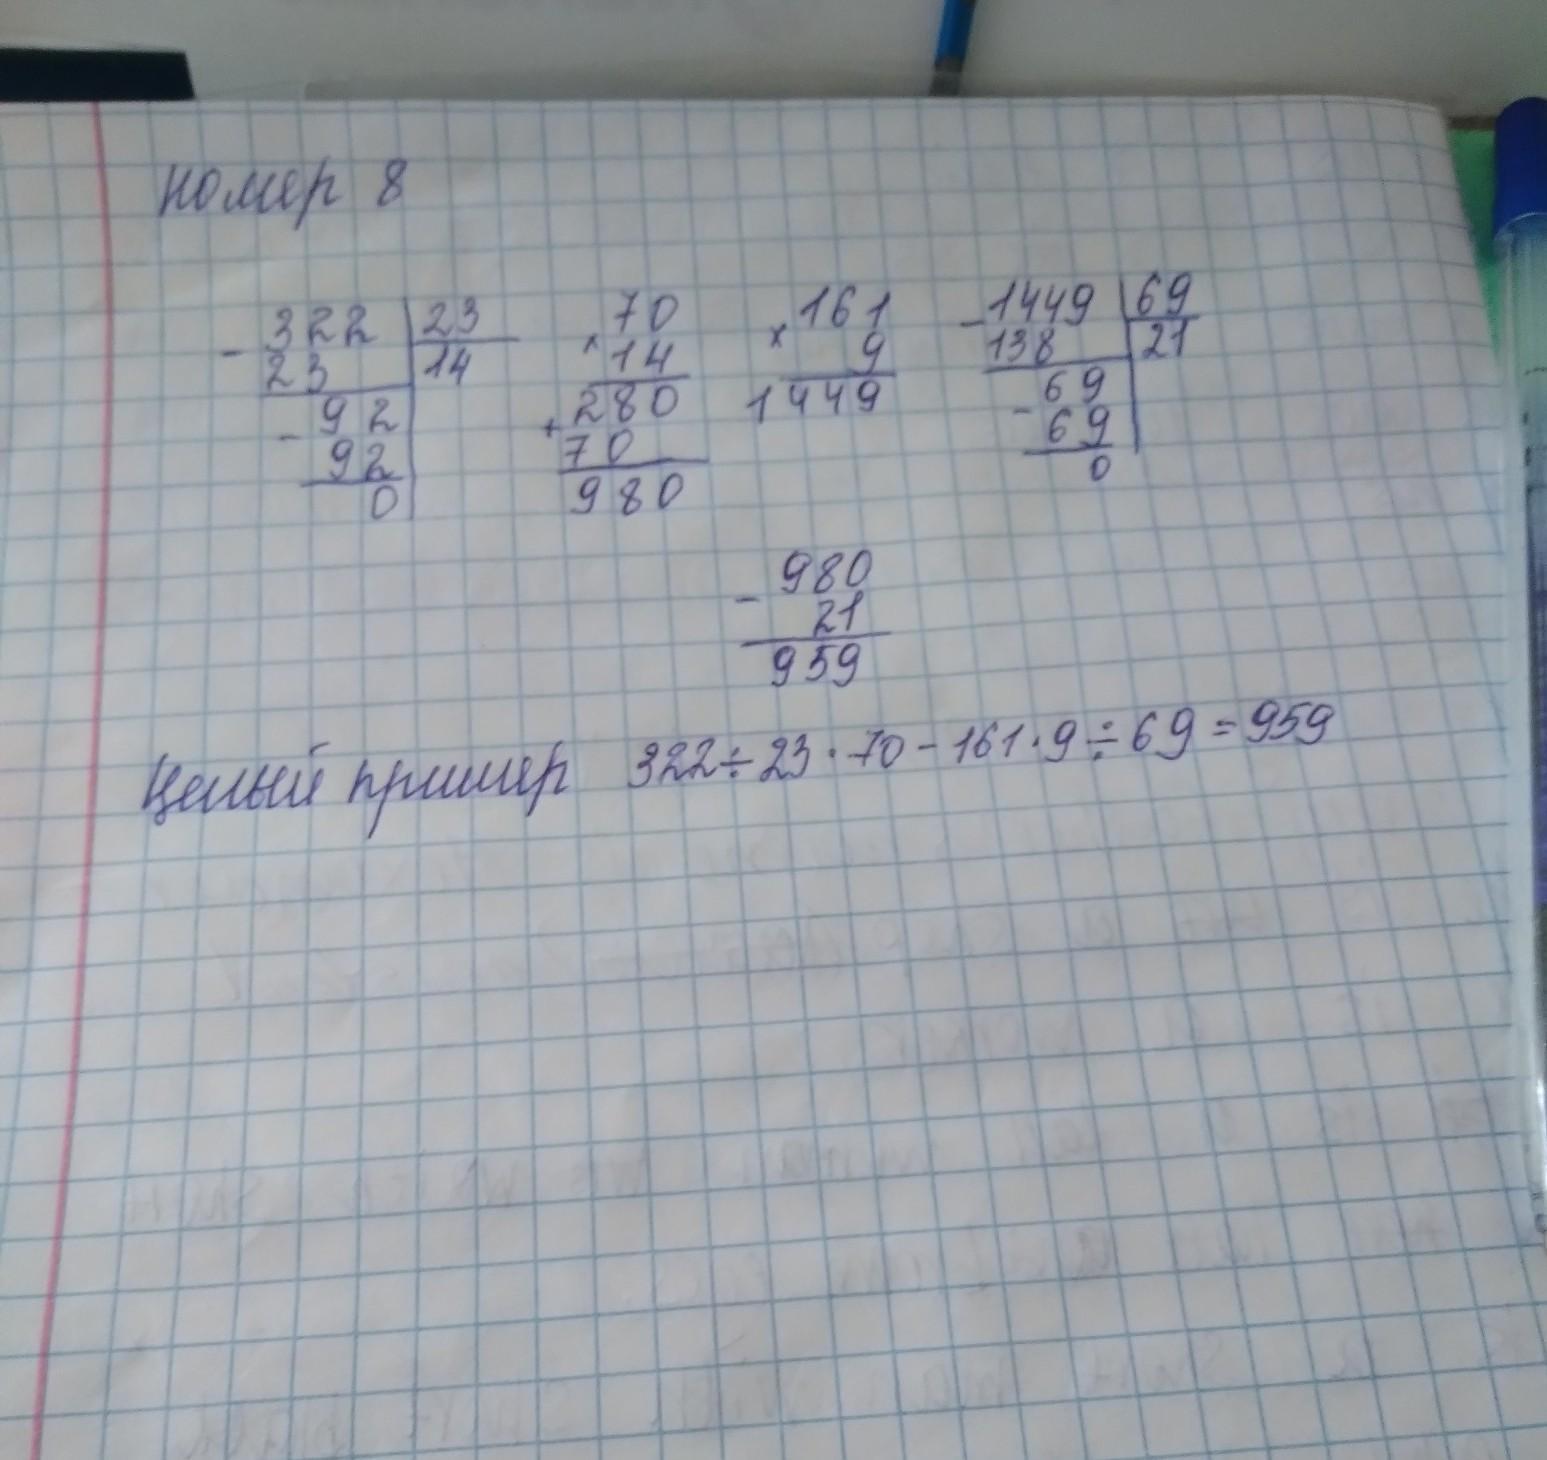 номер 8
- 322 | 23 × 70 × 161 - 1449 | 69
23 | 14 14 9 138 | 21
92 280 1449 69
- 92 + 70 - 69
0 980 0
- 980
21
959
Целый пример 322÷23·70-161·9÷69=959